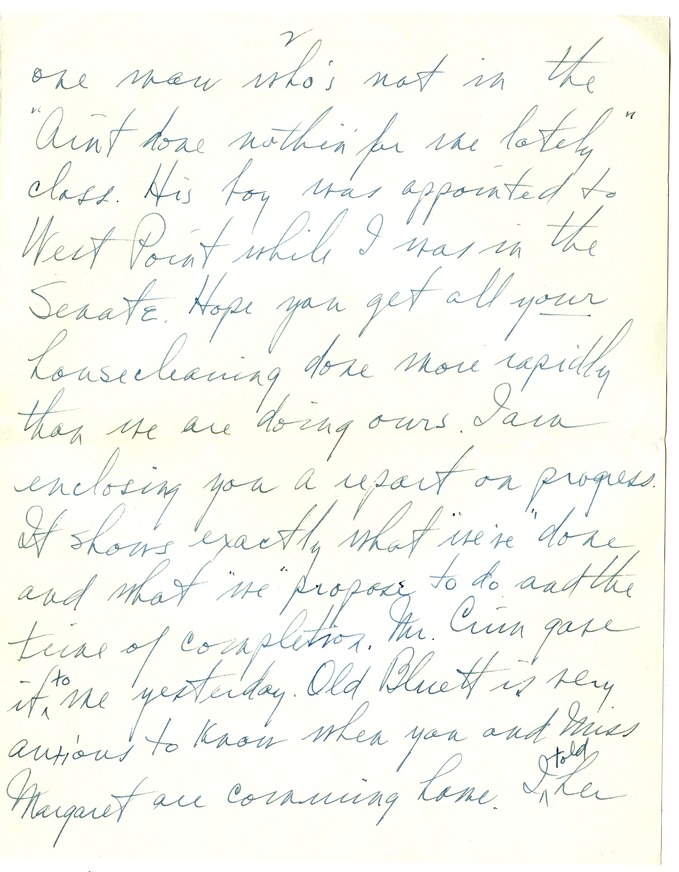 2
one man who's not in the
"Ain't done nothin' for me lately"
class. His boy was appointed to
West Point while I was in the
Senate. Hope you get all your
housecleaning done more rapidly
than we are doing ours. I am
enclosing you a report on progress.
It shows exactly what "we've" done
and what "we" propose to do and the
time of completion. Mr. Crim gave
it to me yesterday. Old Bluett is very
anxious to know when you and Miss
Margaret are comming home. I told her